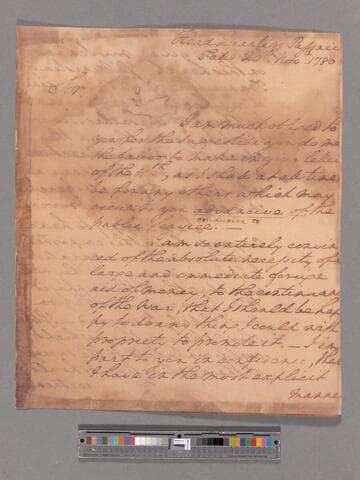 Head quarters Passaic
Falls 20 Novr. 1780
Sir.
I am much obliged to
you for the suggestion you do me
the favor to make in your letter
of the, as I shall at all times
be for any others which may
occur to you advancive of the
conducive to
public Service. —
I am so entirely convin
ced of the absolute necessity of a
large and immediate foreign
aid of money, to the continuance
of the War, that I should be hap
py to do any thing I could with
propriety to promote it. — I im
part to you in confidence, that
I have in the most explicit
manner